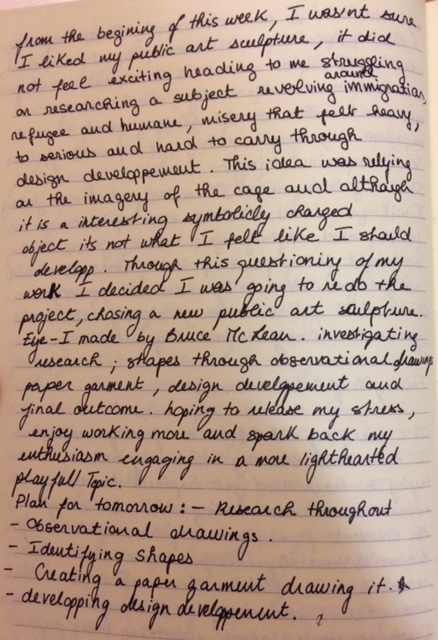 from the begining of this week, I was'nt sure
I liked my public art sculpture, it did
not feel exciting heading to me struggling
on researching a subject revolving around immigration,
refugee and humane, misery that felt heavy,
to serious and hard to carry through
design developpement. This idea was relying
on the imagery of the cage and although
it is a interesting symbolicly charged
object its not what I felt like I should
developp. Through this questioning of my
work I decided I was going to re do the
project, chosing a new public art sculpture.
Eye-I made by Bruce McLean. investigating
research ; shapes through observational drawings
paper garment, design developpement and
final outcome. hoping to release my stress,
enjoy working more and spark back my
enthusiasm engaging in a more lighthearted
playfull Topic.
Plan for tomorrow : - Research throughout
- Observational drawings.
- Identifying shapes
- Creating a paper garment drawing it.
- developping design developpement.